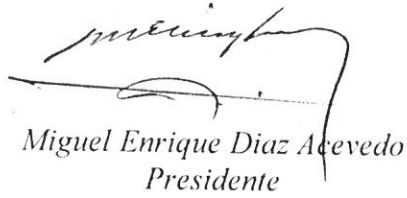 Miguel Enrique Diaz Acevedo
Presidente